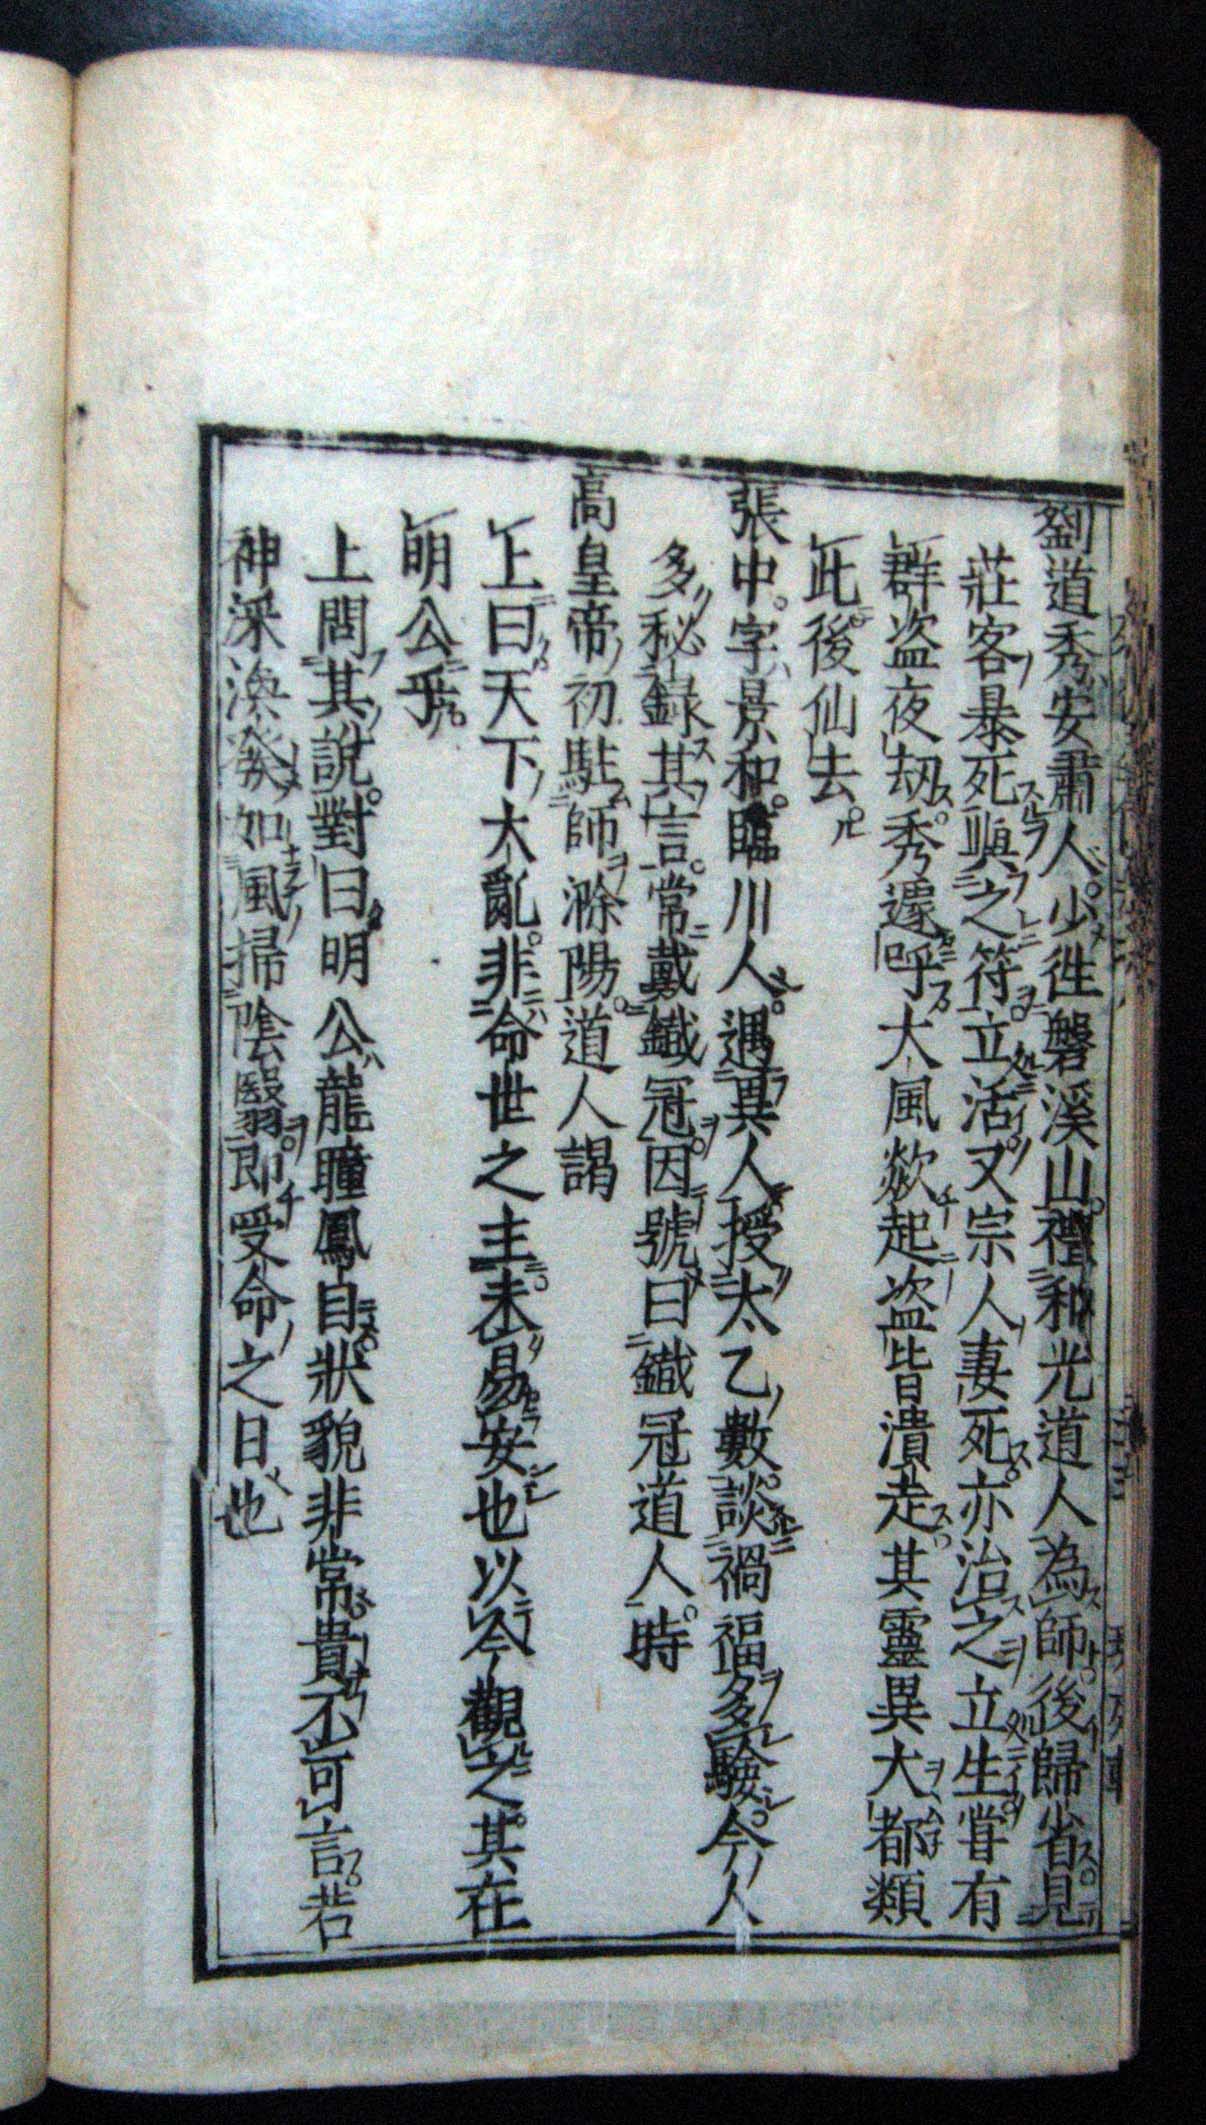 劉道秀安肅人少徃磐溪山禮和光道人為師後歸省見
莊客暴死與之符立活又宗人妻死亦治之立生甞有
群盜夜刼秀遽呼大風歘起盜皆潰走其靈異大都類
此後仙去
張中字景和臨川人遇異人授太乙數談禍福多驗今人
多秘録其言常戴鐵冠因號曰鐵冠道人時
高皇帝初駐師滁陽道人謁
上曰天下大亂非命世之主未易安也以今觀之其在
明公乎
上問其說對曰明公龍瞳鳳目狀貌非常貴不可言若
神采渙發如風掃陰翳即受命之日也